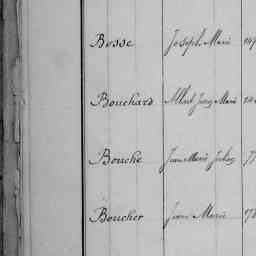 Bosse Joseph Marie
Bouchard Albert Marie
Bouché Jean Marie
Boucher Jean Marie